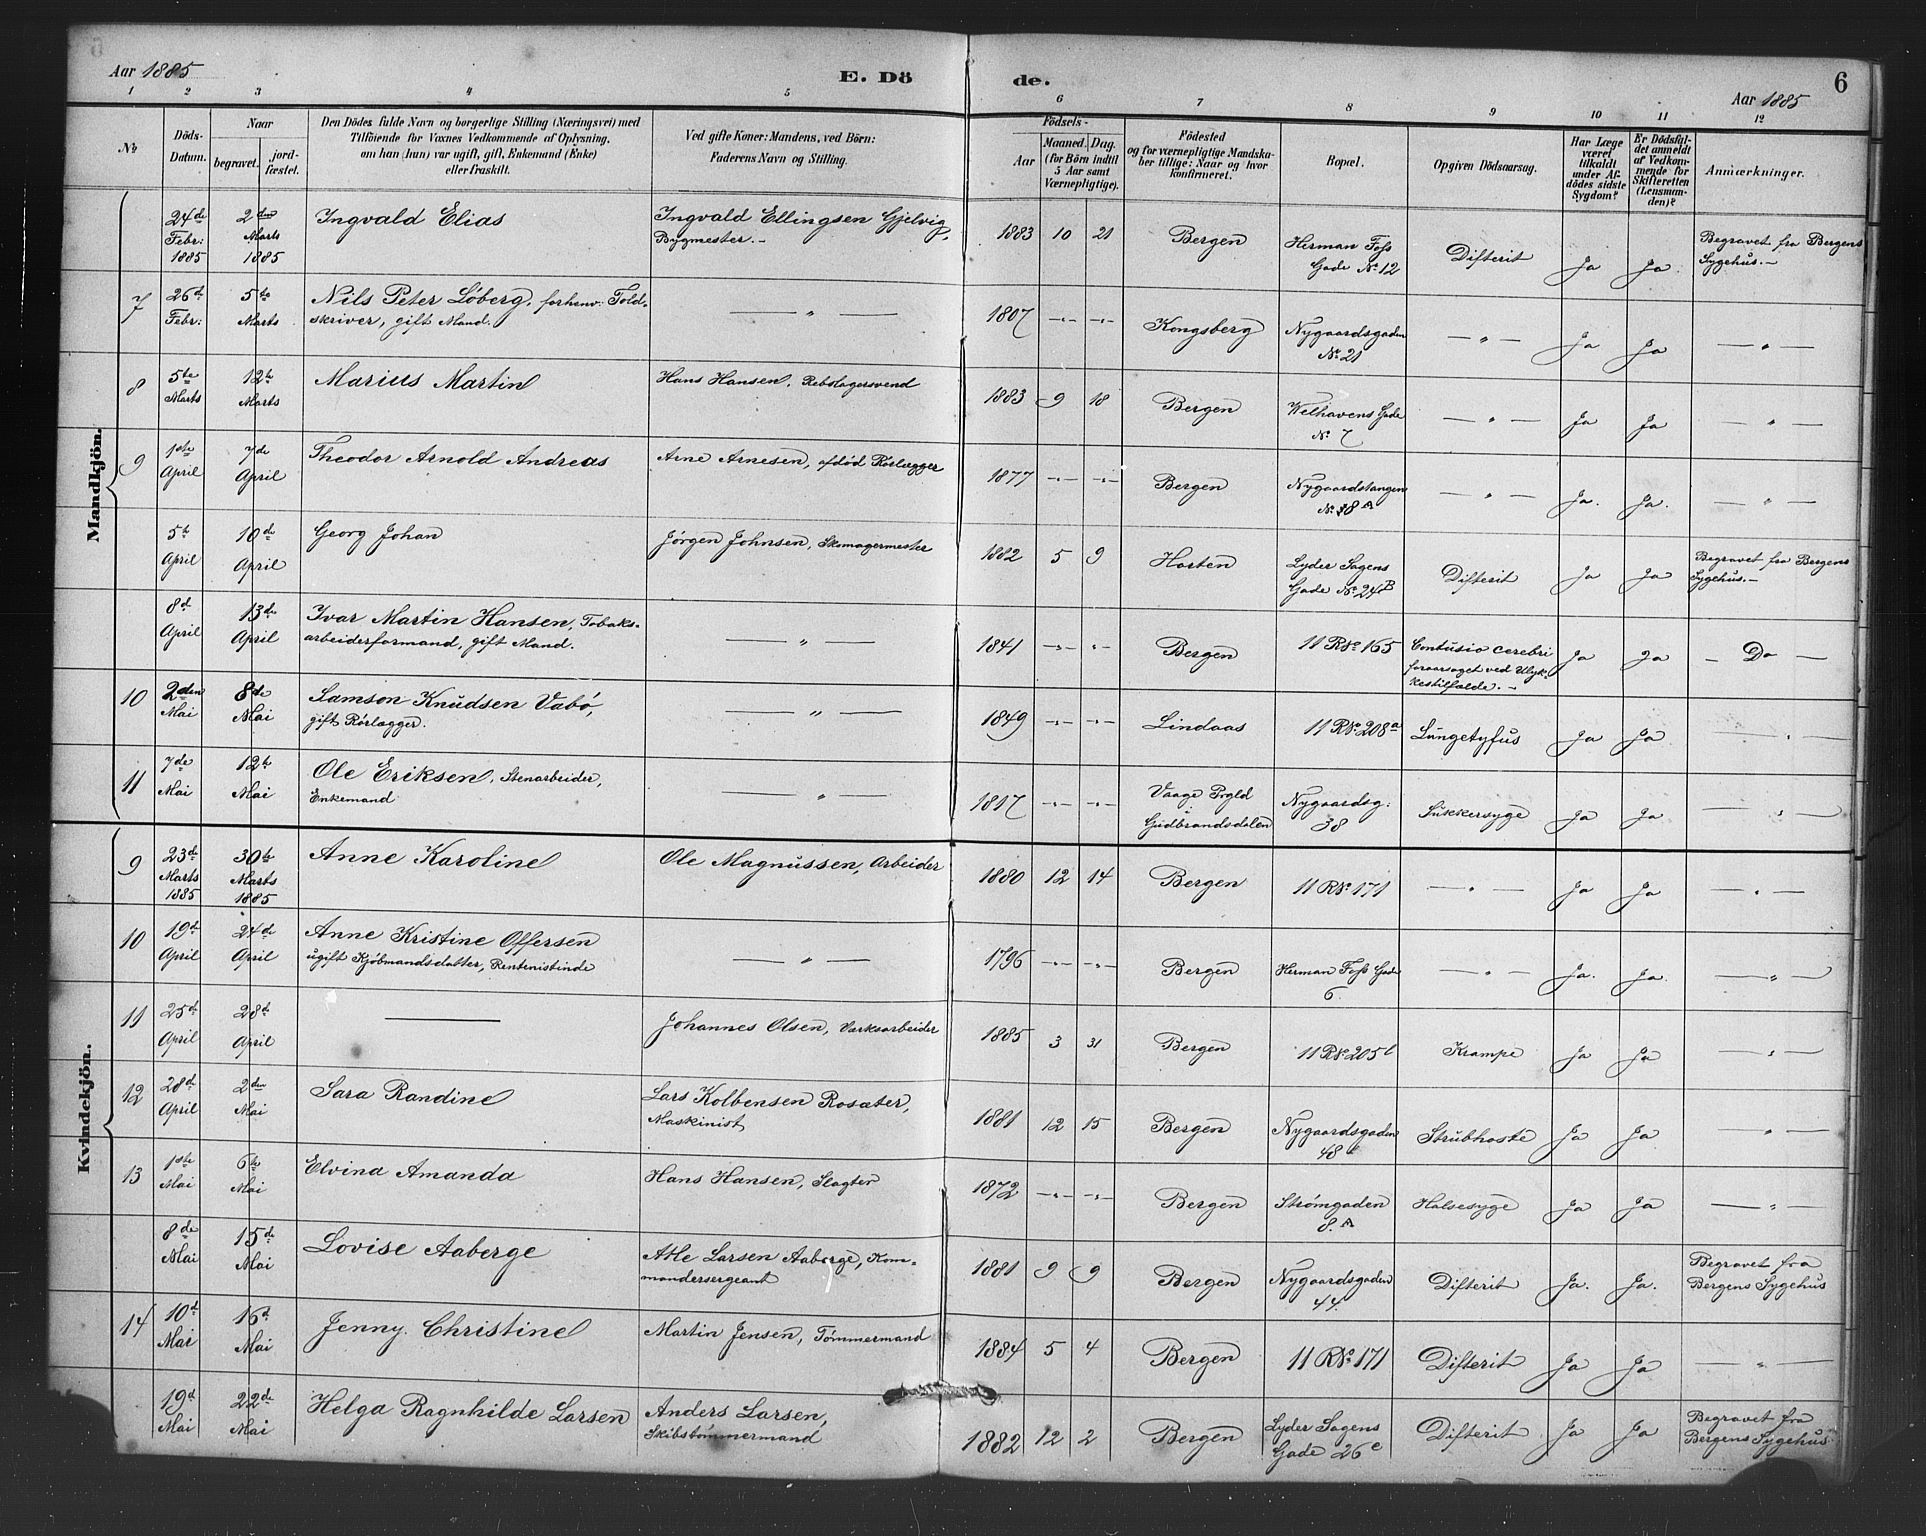 Aar 1885
E. Dö
de.
Aar 1885
6
1 2 3 4 5 6 7 8 9 10 11 12
No
Döds-Datum.
Naar
begravet.
jord-fæstet.
Den Dödes fulde Navn og borgerlige Stilling (Næringsvei) med
Tilföiende for Voxnes Vedkommende af Oplysning,
om han (hun) var ugift, gift, Enkemand (Enke)
eller fraskilt.
Ved gifte Koner: Mandens, ved Börn:
Faderens Navn og Stilling.
Födsels-
Aar
Maaned. Dag.
(for Börn indtil
5 Aar samt
Værnepligtige).
Födested
og for værnepligtige Mandska-
ber tillige: Naar og hvor
konfirmeret.
Bopæl.
Opgiven Dödsaarsag.
Har Læge
været
tilkaldt
under Af-
dödes sidste
Sygdom?
Er Dödsfal-
det anmeldt
af Vedkom-
mende for
Skifteretten
(Lensman-
den)?
Anmærkninger.
Mandkjön.
24de Febr: 1885 2den Marts 1885 Ingvald Elias Ingvald Ellingsen Gjelvig, Bygmester.- 1883 10 21 Bergen Herman Foss Gade No 12 Difterit Ja Ja Begravet fra Bergens Sygehus.-
7 26d Febr: 5te Marts Nils Peter Löberg, forhenv. Told-skriver, gift Mand. — " — 1807 -"- -"- Kongsberg Nygaardsgaden No 21 — " — Ja Ja — " —
8 5te Marts 12te Marts Marius Martin Hans Hansen, Rebslagersvend 1883 9 18 Bergen Welhavens Gade No 7 — " — Ja Ja — " —
9 1ste April 7de April Theodor Arnold Andreas Arne Arnesen, afdöd Rörlægger 1877 -"- -"- Bergen Nygaardstangen No 38 A — " — Ja. Ja. — " —
5te April 10de April Georg Johan Jörgen Johnsen, Skomagermester 1882 5 9 Horten Lyder Sagens Gade No 24B Difterit Ja Ja Begravet fra Bergens Sygehus.-
8d April 13de April Ivar Martin Hansen, Tobaks-arbeiderformand, gift Mand. — " — 1841 -"- -"- Bergen 11 R No 165 Contusio cerebri foraarsaget ved Ulyk-kestilfælde.- Ja Ja - Do -
10 2den Mai 8de Mai Samson Knudsen Vabö, gift Rörlægger. — " — 1849 -"- -"- Lindaas 11 R No 208a Lungetyfus Ja Ja "
11 7de Mai 12te Mai Ole Eriksen, Stenarbeider, Enkemand — " — 1817 -"- -"- Vaage Prgld i Gudbrandsdalen Nygaardsg. 38 Sukkersyge Ja Ja — " —
Kvindekjön.
9 23de Marts 1885 30te Marts 1885 Anne Karoline Ole Magnussen, Arbeider 1880 12 14 Bergen 11 R No 171 — " — Ja Ja — " —
10 19de April 24de April Anne Kristine Offersen ugift Kjöbmandsdatter, Rentenistinde — " — 1796 -"- -"- Bergen Herman Foss Gade 6. — " — Ja. Ja. — " —
11 25de April 28de April —— Johannes Olsen, Værksarbeider 1885 3 31 Bergen 11 R No 205b Krampe Ja Ja — " —
12 28de April 2den Mai Sara Randine Lars Kolbensen Rosæter, Maskinist 1881 12 15 Bergen Nygaardsgaden 48 Strubhoste Ja Ja — " —
13 1ste Mai 6te Mai Elvina Amanda Hans Hansen, Slagter 1872 -"- -"- Bergen Strömgaden 8.A Halsesyge Ja Ja — " —
8de Mai 15de Mai Lovise Aaberge Atle Larsen Aaberge, Kom-mandersergeant 1881 9 9 Bergen Nygaardsgaden 44. Difterit Ja. Ja. Begravet fra Bergens Sygehus
14 10d Mai 16d Mai Jenny Christine Martin Jensen, Tömmermand 1884 5 4 Bergen 11 R No 171 Difterit Ja Ja — " —
19d Mai 22de Mai Helga Ragnhilde Larsen Anders Larsen, Skibstömmermand 1882 12 2 Bergen Lyder Sagens Gade 26c Difterit Ja Ja Begravet fra Bergens Sygehus